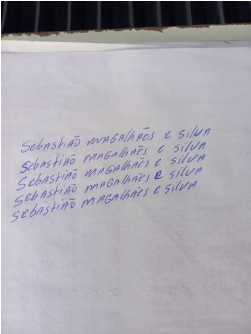 Sebastião Magalhães e Silva
Sebastião Magalhães e Silva
Sebastião Magalhães e Silva
Sebastião Magalhães e Silva
Sebastião Magalhães e Silva